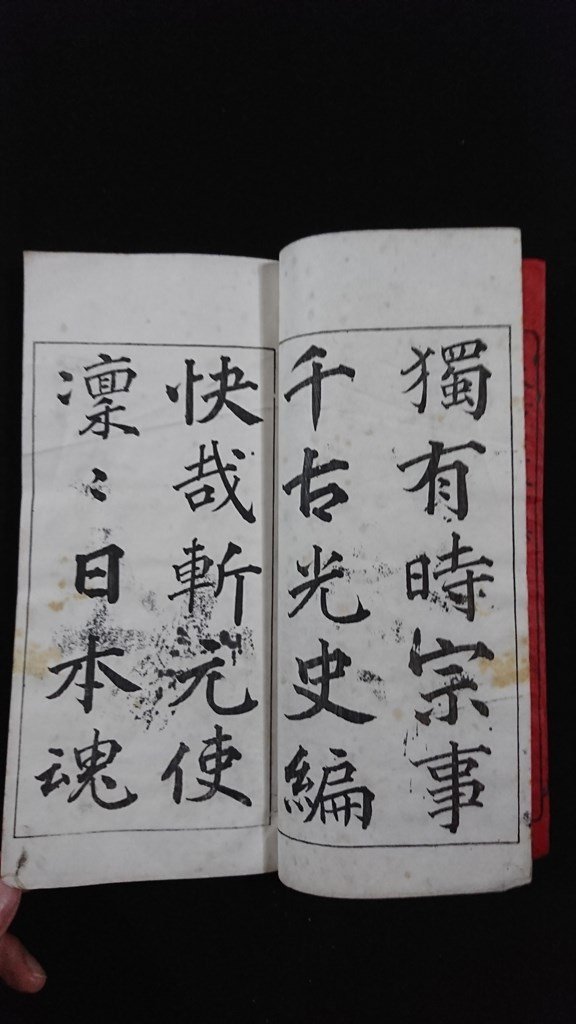 獨有時宗事
千古光史編
快哉斬元使
凜〻日本魂